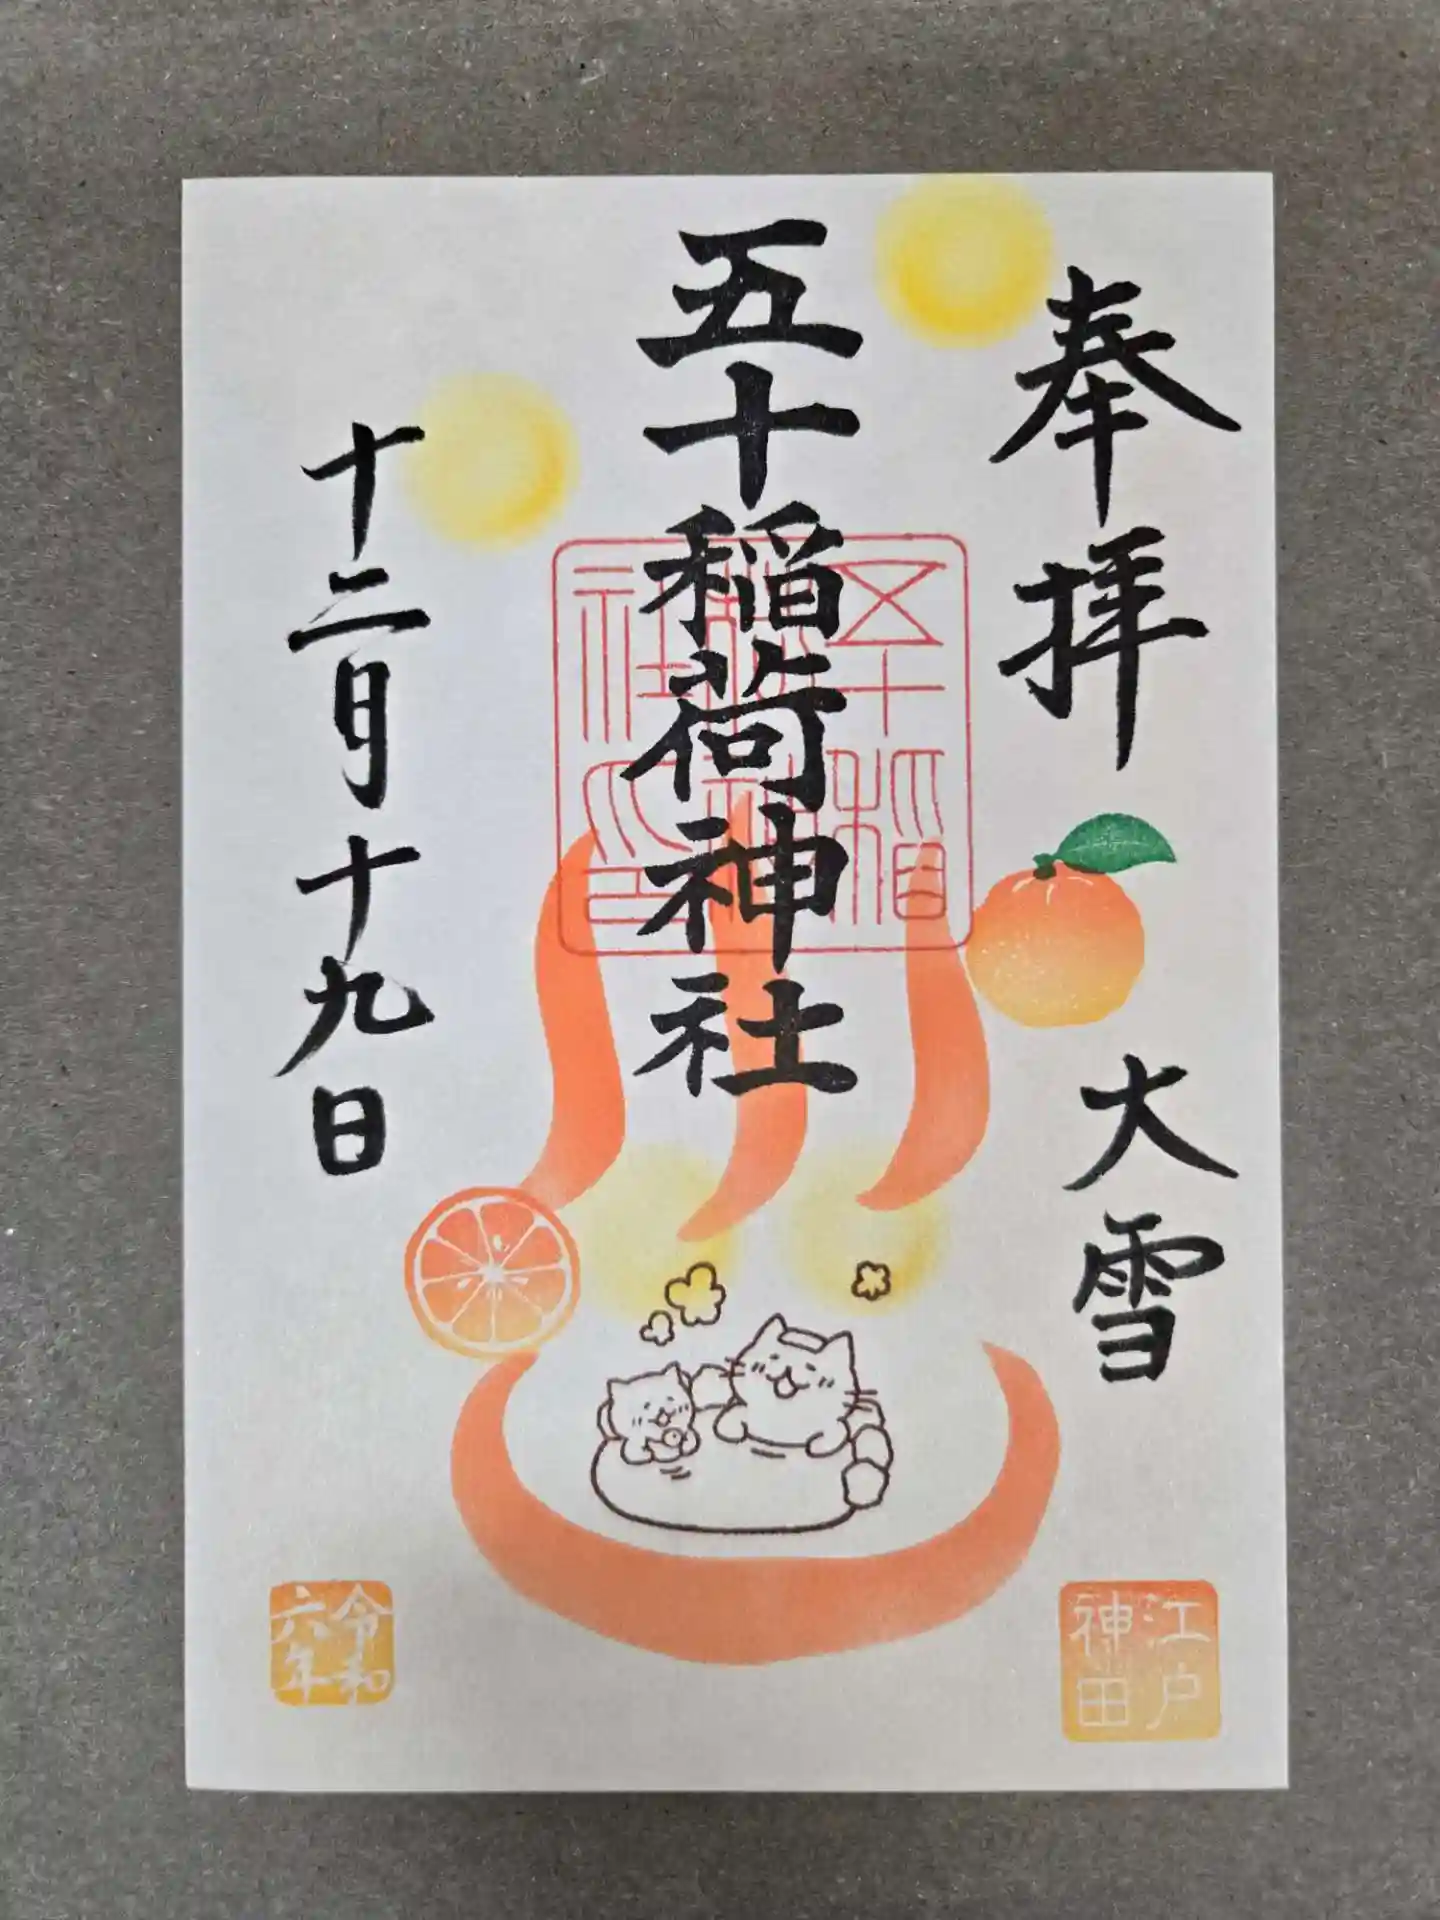 奉拝
大雪
五十稲荷神社
十二月十九日
五十稲荷神社印
江戸神田
令和六年